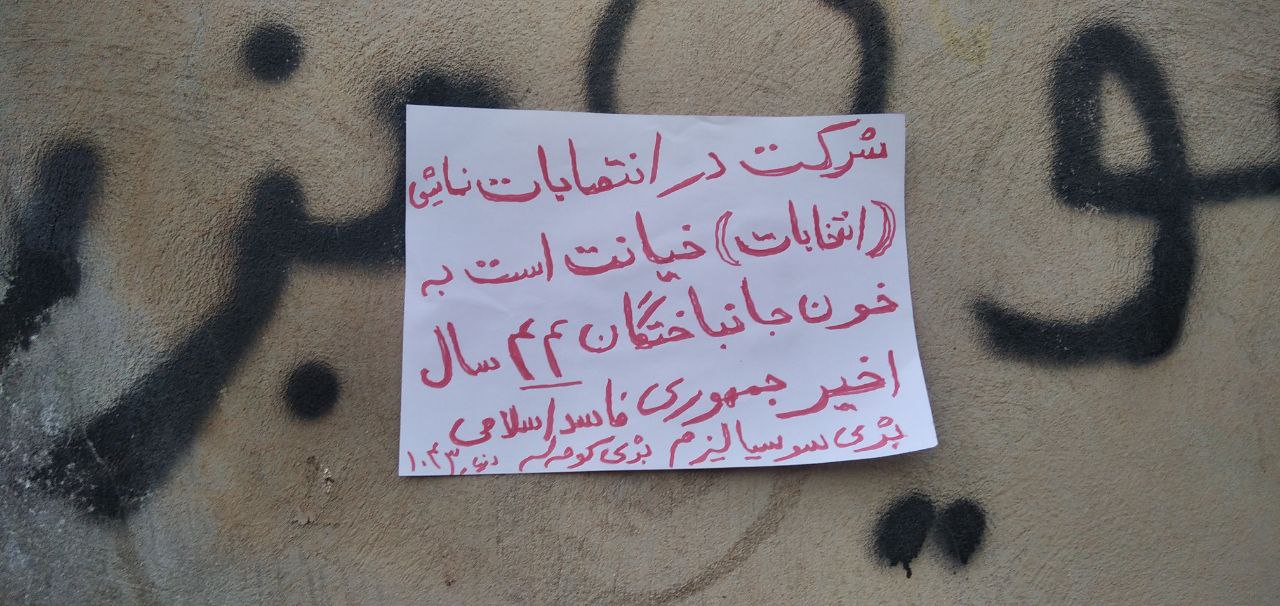 شرکت در انتصابات نمایشی
((انتخابات)) خیانت است به
خون جانباختگان ۴۴ سال
اخیر جمهوری فاسد اسلامی
بژی سوسیالیزم بژی کومەلە